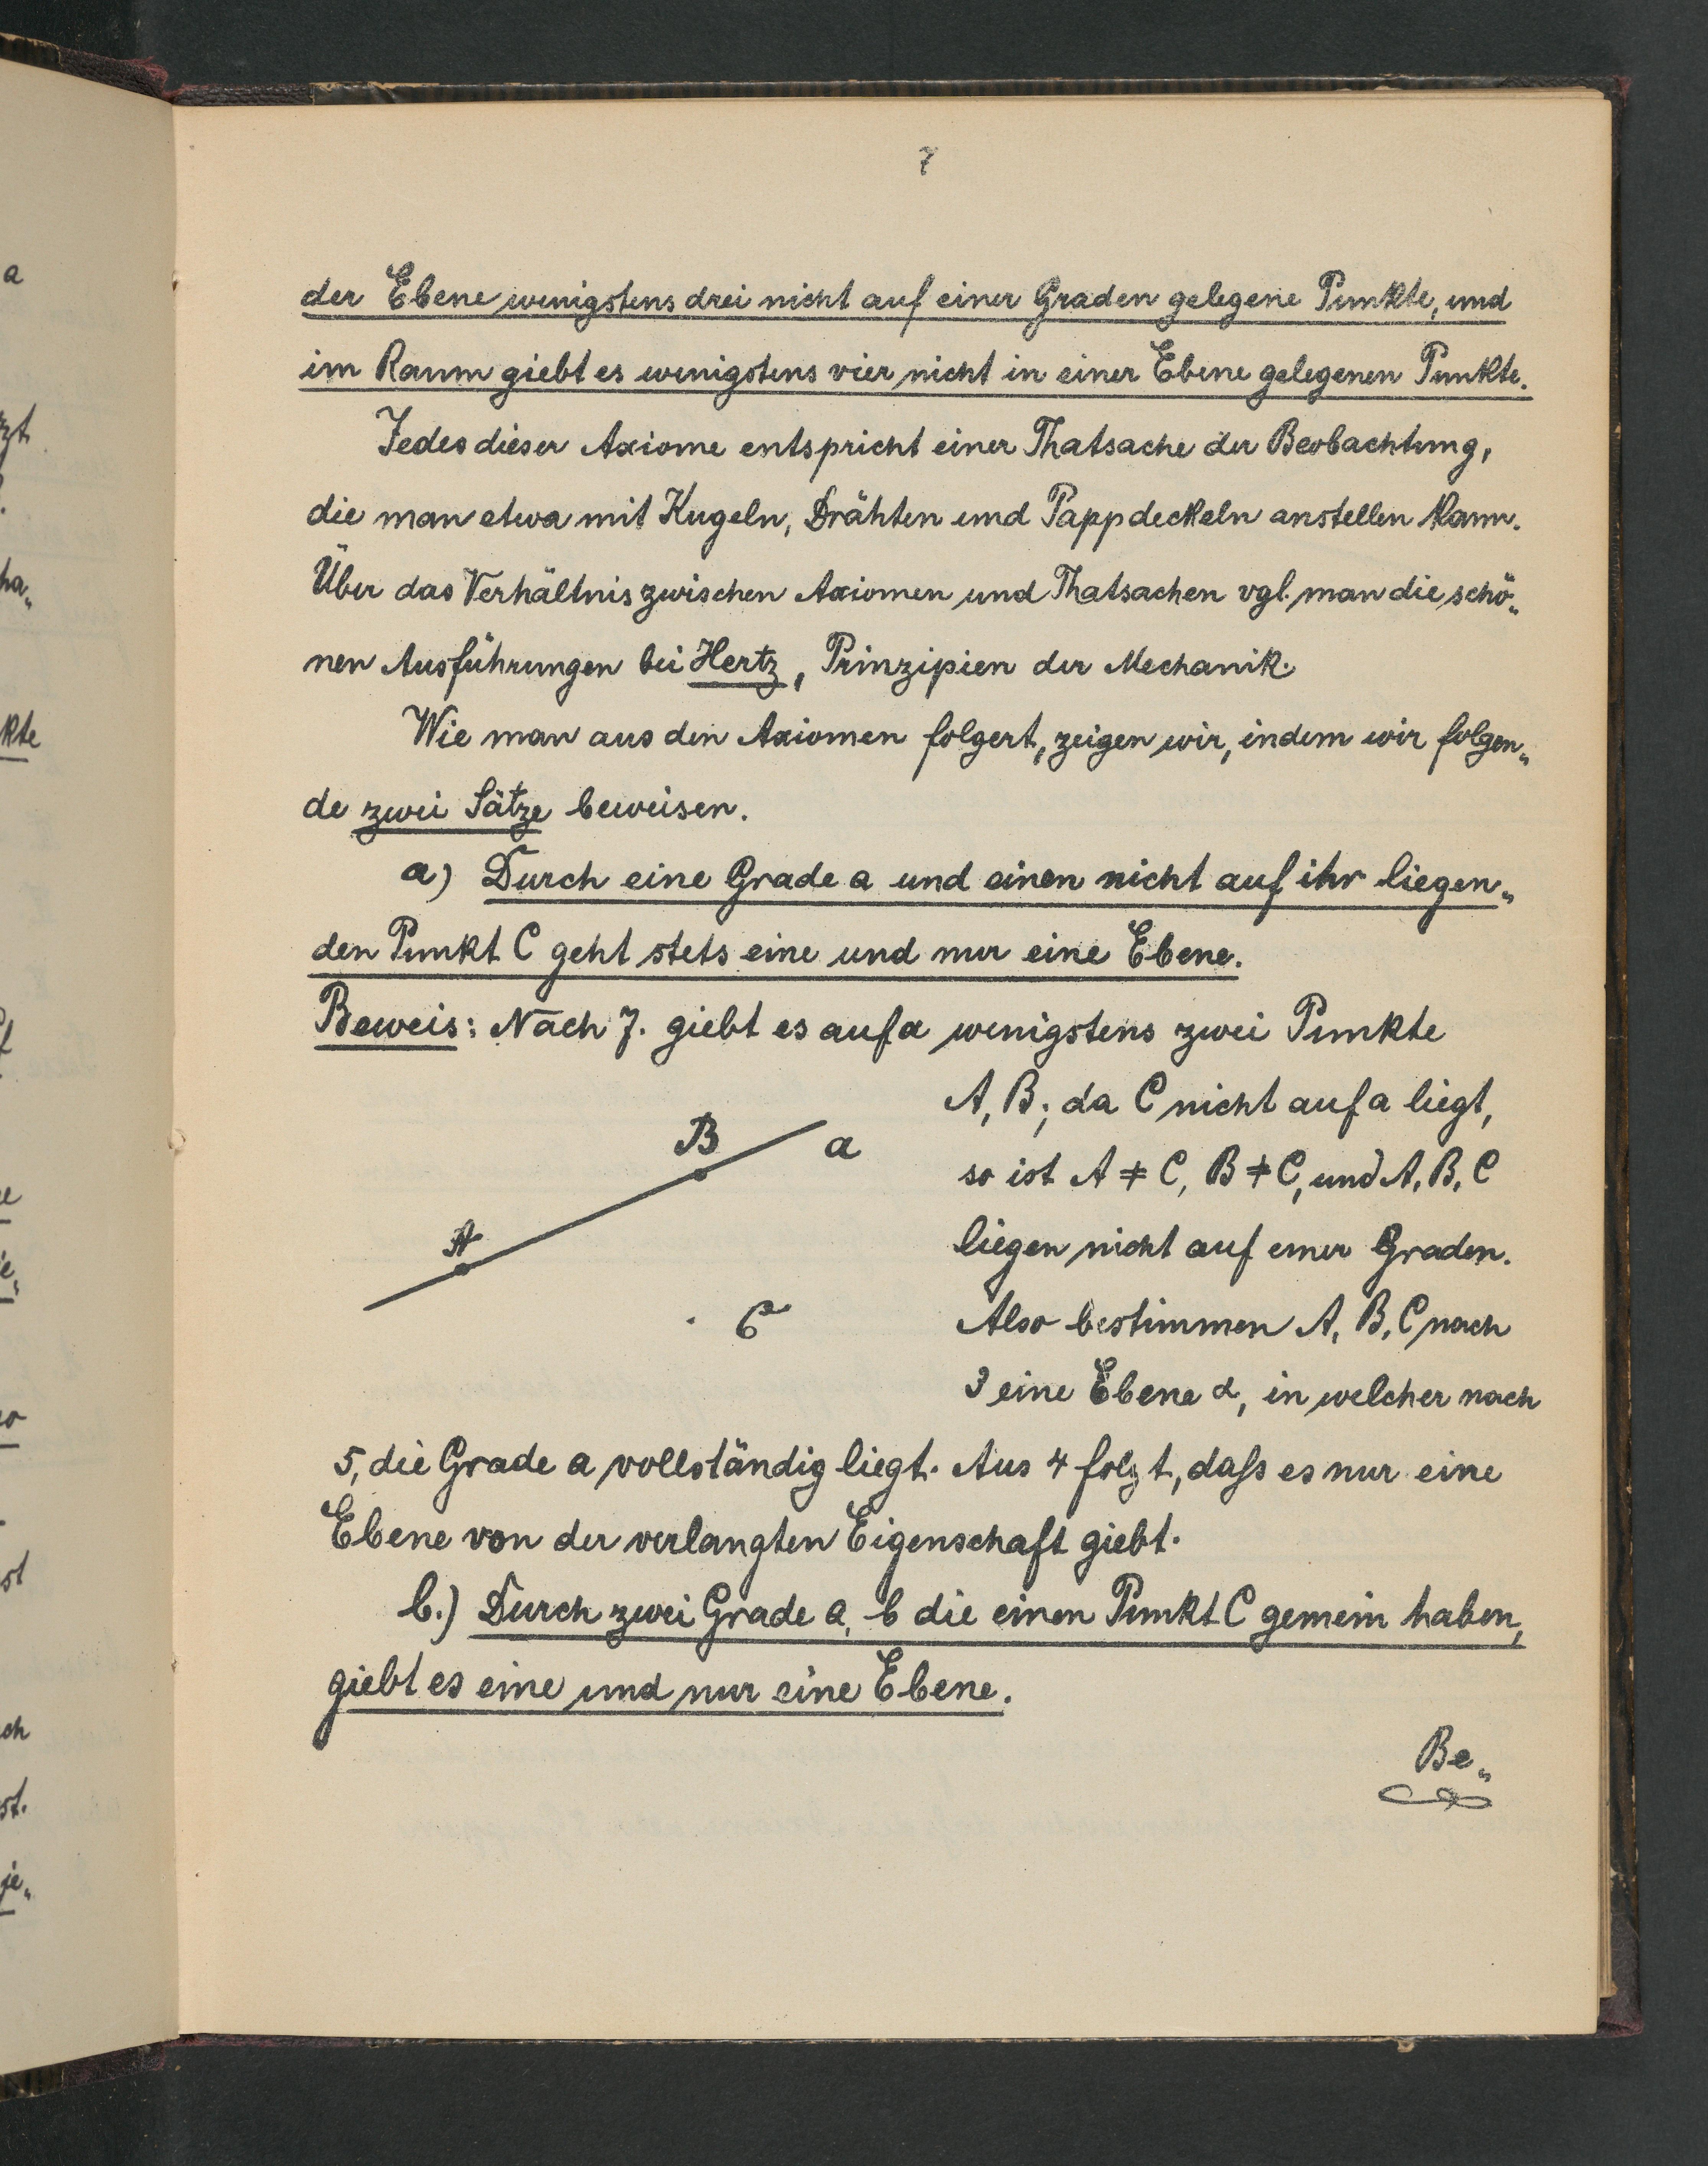 7
der Ebene wenigstens drei nicht auf einer Graden gelegene Punkte, und
im Raum giebt es wenigstens vier nicht in einer Ebene gelegenen Punkte.
Jedes dieser Axiome entspricht einer Thatsache der Beobachtung,
die man etwa mit Kugeln, Drähten und Pappdeckeln anstellen kann.
Über das Verhältnis zwischen Axiomen und Thatsachen vgl. man die schö„
nen Ausführungen bei Hertz, Prinzipien der Mechanik.
Wie man aus den Axiomen folgert, zeigen wir, indem wir folgen„
de zwei Sätze beweisen.
a) Durch eine Grade a und einen nicht auf ihr liegen„
den Punkt C geht stets eine und nur eine Ebene.
Beweis: Nach 7. giebt es auf a wenigstens zwei Punkte
A, B; da C nicht auf a liegt,
so ist A ≠ C, B ≠ C, und A, B, C
liegen nicht auf einer Graden.
Also bestimmen A, B, C nach
3 eine Ebene α, in welcher nach
B
a
A
C
5, die Grade a vollständig liegt. Aus 4 folgt, daſs es nur eine
Ebene von der verlangten Eigenschaft giebt.
b.) Durch zwei Grade a, b die einen Punkt C gemein haben,
giebt es eine und nur eine Ebene.
Be„
a
zt
ha„
kte
st
ch
st.
je„